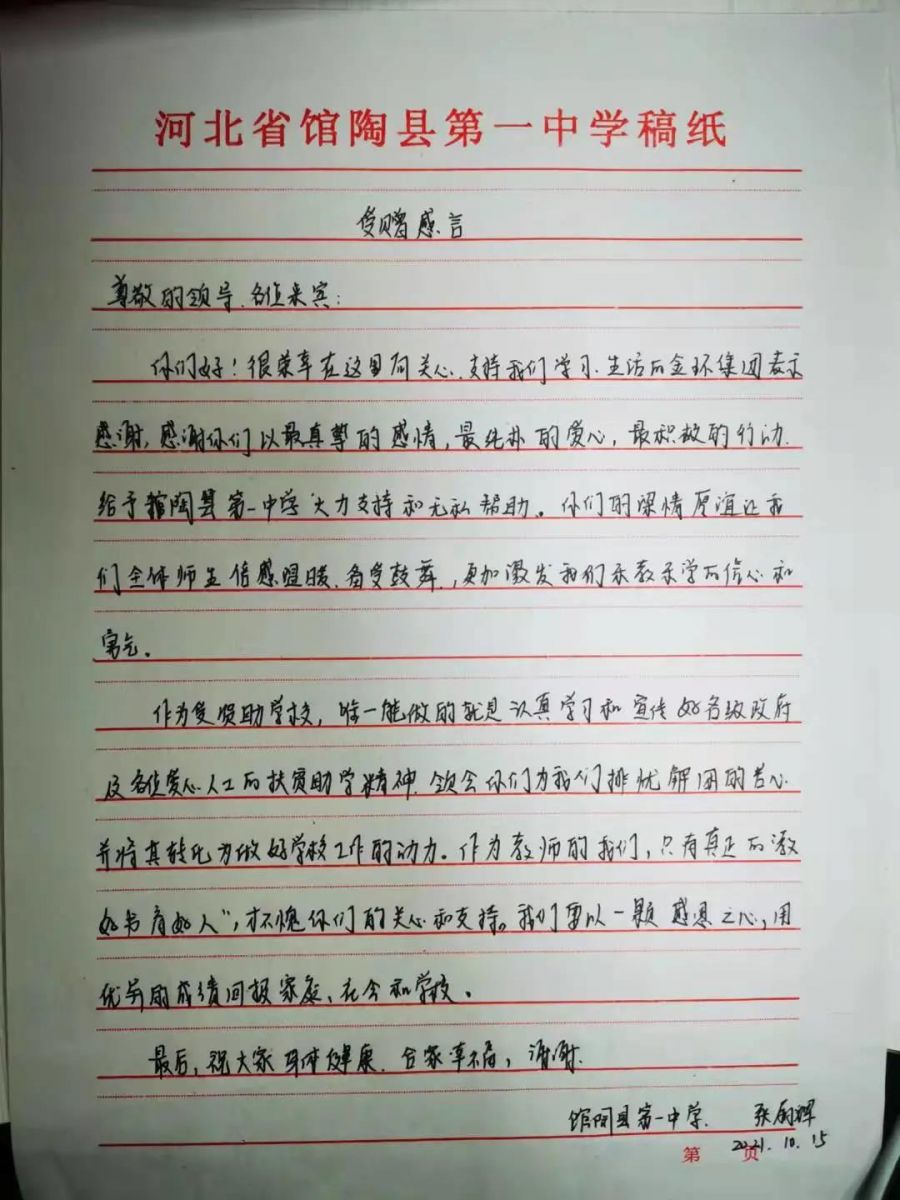 河北省馆陶县第一中学稿纸
受赠感言
尊敬的领导、各位来宾:
你们好!很荣幸在这里向关心、支持我们学习、生活的金环集团表示
感谢,感谢你们以最真挚的感情,最纯朴的爱心,最积极的行动.
给予馆陶县第一中学大力支持和无私帮助。你们的深情厚谊让我
们全体师生倍感温暖、备受鼓舞,更加激发我们乐教乐学的信心和
勇气。
作为受资助学校,唯一能做的就是认真学习和宣传好各级政府
及各位爱心人士的扶贫助学精神.领会你们为我们排忧解困的苦心
并将其转化为做好学校工作的动力。作为教师的我们,只有真正的“教
好书育好人”,才不愧你们的关心和支持。我们要以一颗感恩之心,用
优异的成绩回报家庭、社会和学校。
最后,祝大家身体健康.合家幸福,谢谢.
馆陶县第一中学. 张
2021.10.15
第 页